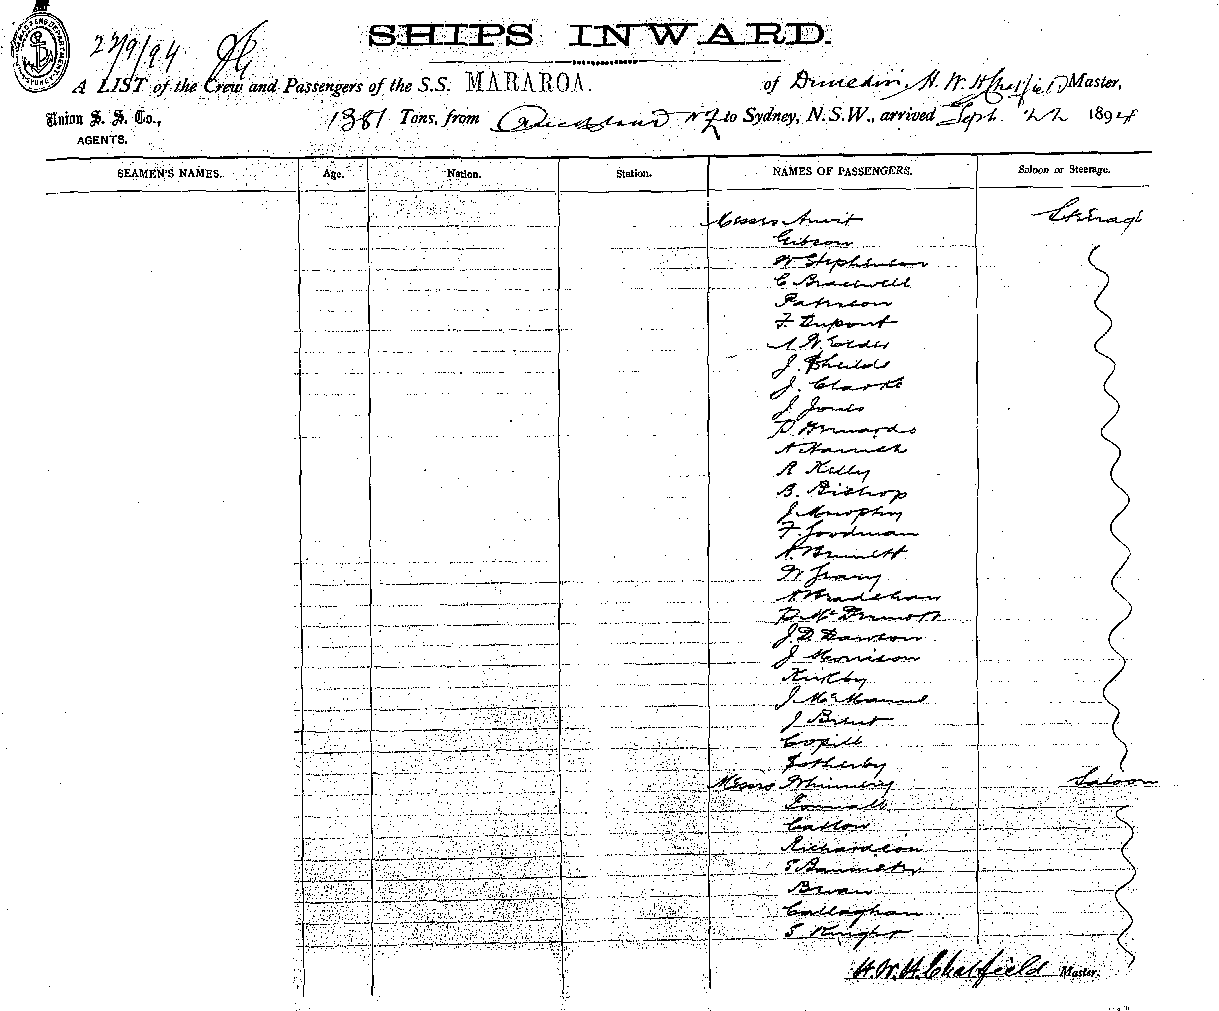 23/9/94
SHIPS INWARD.
A LIST of the Crew and Passengers of the S.S. MARAROA. of Dunedin, H. W. H. Chatfield Master,
Union S. S. Co., 1381 Tons, from Auckland NZ to Sydney, N.S.W., arrived Sept. 22 1894
AGENTS.
SEAMEN'S NAMES. Age. Nation. Station. NAMES OF PASSENGERS. Saloon or Steerage.
Messrs Steerage
Gibson
W Stephenson
C Bracewell
Paterson
F. Dupont
A W. Elder
J. Sheilds
J. Clarke
J Jones
R Kelly
B. Bishop
J Murphy
F. Goodman
A Bradshaw
P McDermott
J. D. Dawson
J Morrison
Kirkby
J McManus
J Brent
Copill
Fotherby
Messrs Saloon
Callow
Richardson
T Bannister
Brian
Callaghan
S Knight
H. W. H. Chatfield Master.